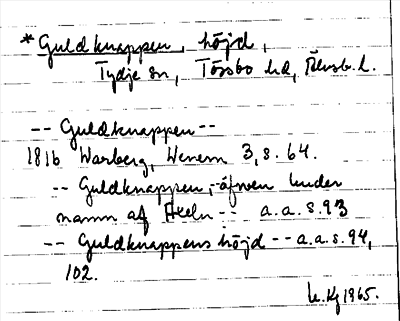 *Guldknappen, höjd,
Tydje sn, Tössbo hd, Älvsb. l.
-- Guldknappen --
1816 Warberg, Wenern 3, s. 64.
-- Guldknappen, -äfwen under
namn af -- a.a. s. 93
-- Guldknappens höjd -- a.a. s. 94,
102.
1965.